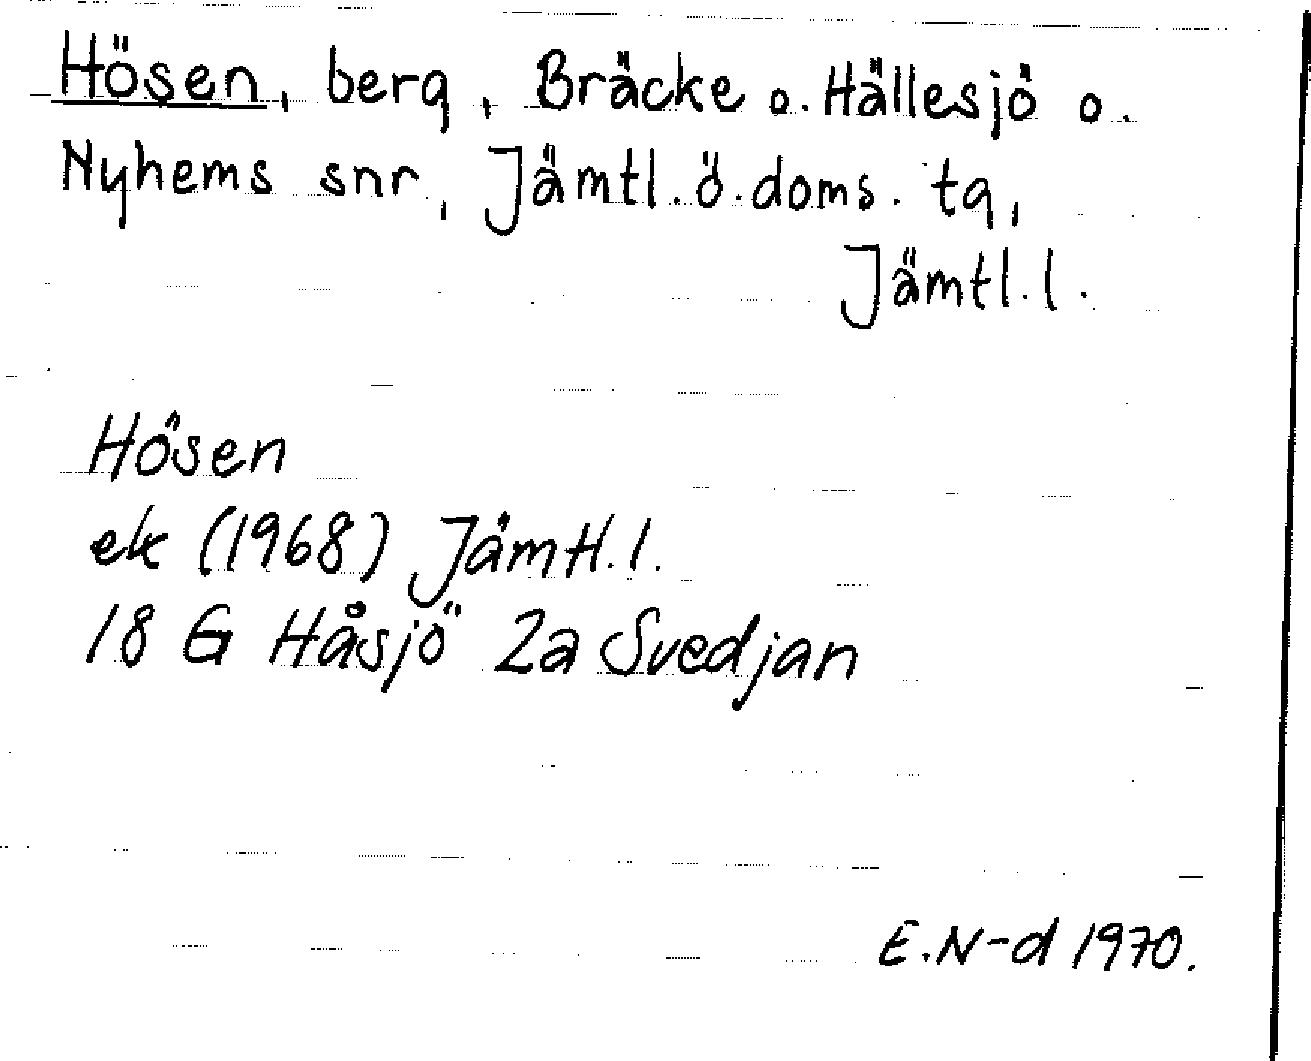 Hösen, berg, Bräcke o. Hällesjö o.
Nyhems snr, Jämtl. ö. doms. tg,
Jämtl. l.
Hösen
ek (1968) Jämtl. l.
18 G Håsjö 2a Svedjan
E. N-d 1970.